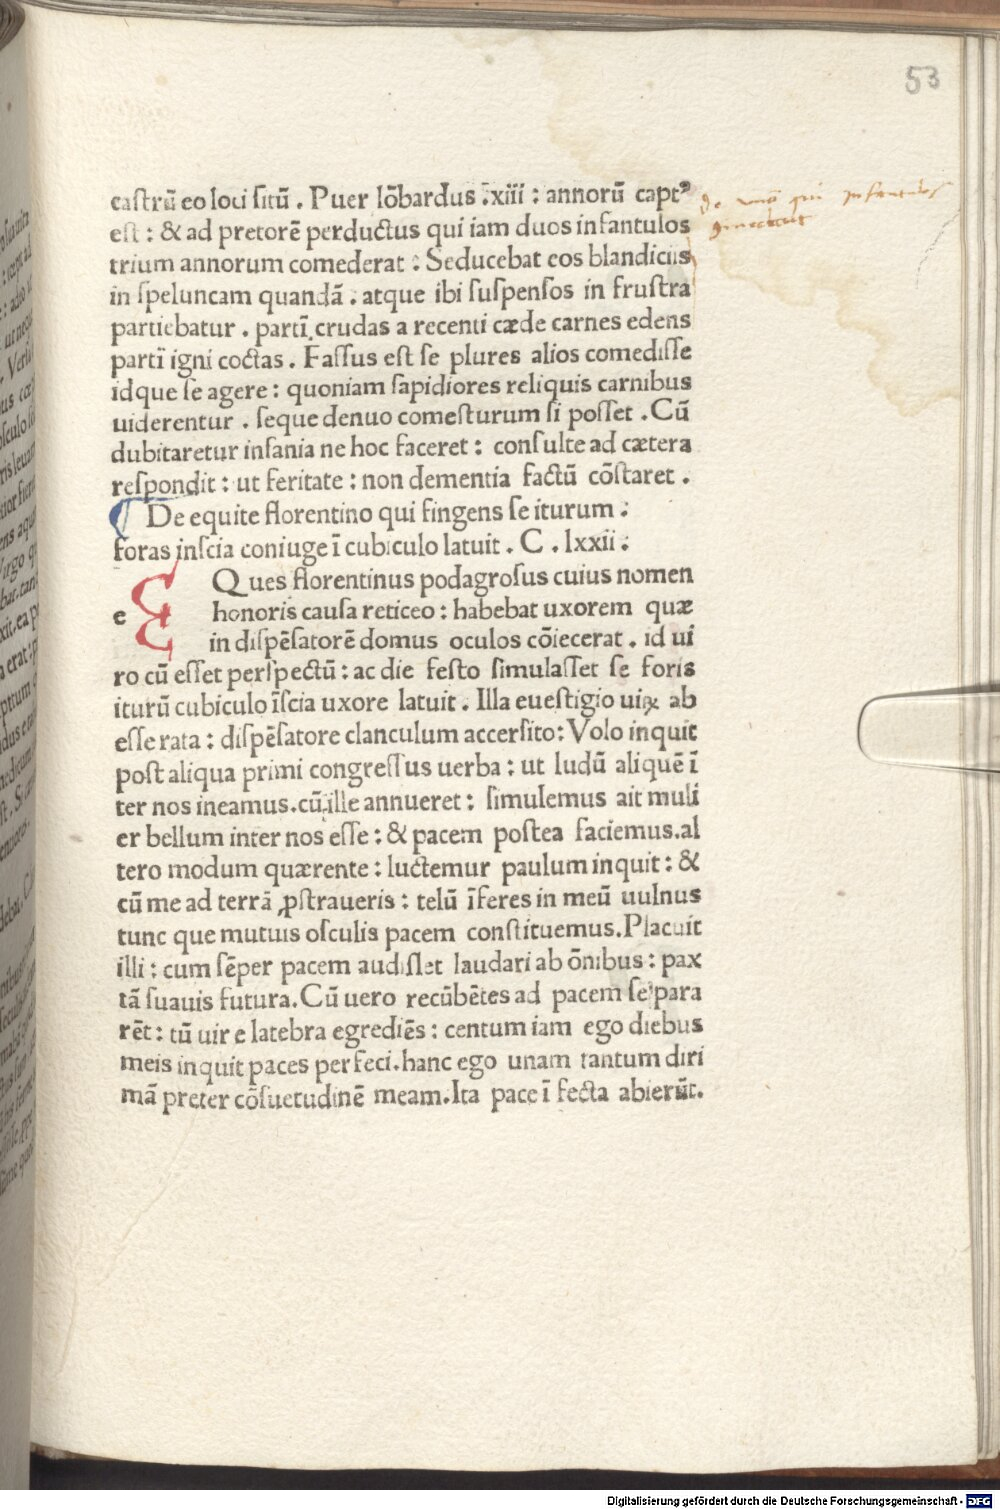 53
castrū eo loci sitū . Puer lōbardus .xiii : annorū captꝰ
est : & ad pretorē perductus qui iam duos infantulos
trium annorum comederat : Seducebat eos blandiciis
in speluncam quandā . atque ibi suspensos in frustra
partiebatur . partī crudas a recenti cæde carnes edens
partī igni coctas . Fassus est se plures alios comedisse
idque se agere : quoniam sapidiores reliquis carnibus
uiderentur . seque denuo comesturum si posset . Cū
dubitaretur insania ne hoc faceret : consulte ad cætera
respondit : ut feritate : non dementia factū cōstaret .
De equite florentino qui fingens se iturum :
foras inscia coniuge ī cubiculo latuit . C . lxxii :
E Ques florentinus podagrosus cuius nomen
e honoris causa reticeo : habebat uxorem quæ
in dispēsatorē domus oculos cōiecerat . id ui
ro cū esset perspectū : ac die festo simulasset se foris
iturū cubiculo īscia uxore latuit . Illa euestigio uiꝝ ab
esse rata : dispēsatore clanculum accersito : Volo inquit
post aliqua primi congressus uerba : ut ludū aliquē ī
ter nos ineamus.cū ille annueret : simulemus ait muli
er bellum inter nos esse : & pacem postea faciemus.al
tero modum quærente : luctemur paulum inquit : &
cū me ad terrā ꝓstraueris : telū īferes in meū uulnus
tunc que mutuis osculis pacem constituemus.Placuit
illi : cum sēper pacem audisset laudari ab ōnibus : pax
tā suauis futura.Cū uero recūbētes ad pacem se para
rēt : tū uir e latebra egrediēs : centum iam ego diebus
meis inquit paces perfeci.hanc ego unam tantum diri
mā preter cōsuetudinē meam.Ita pace ī fecta abierūt.
de uno qui infantulos
Digitalisierung gefördert durch die Deutsche Forschungsgemeinschaft - DFG